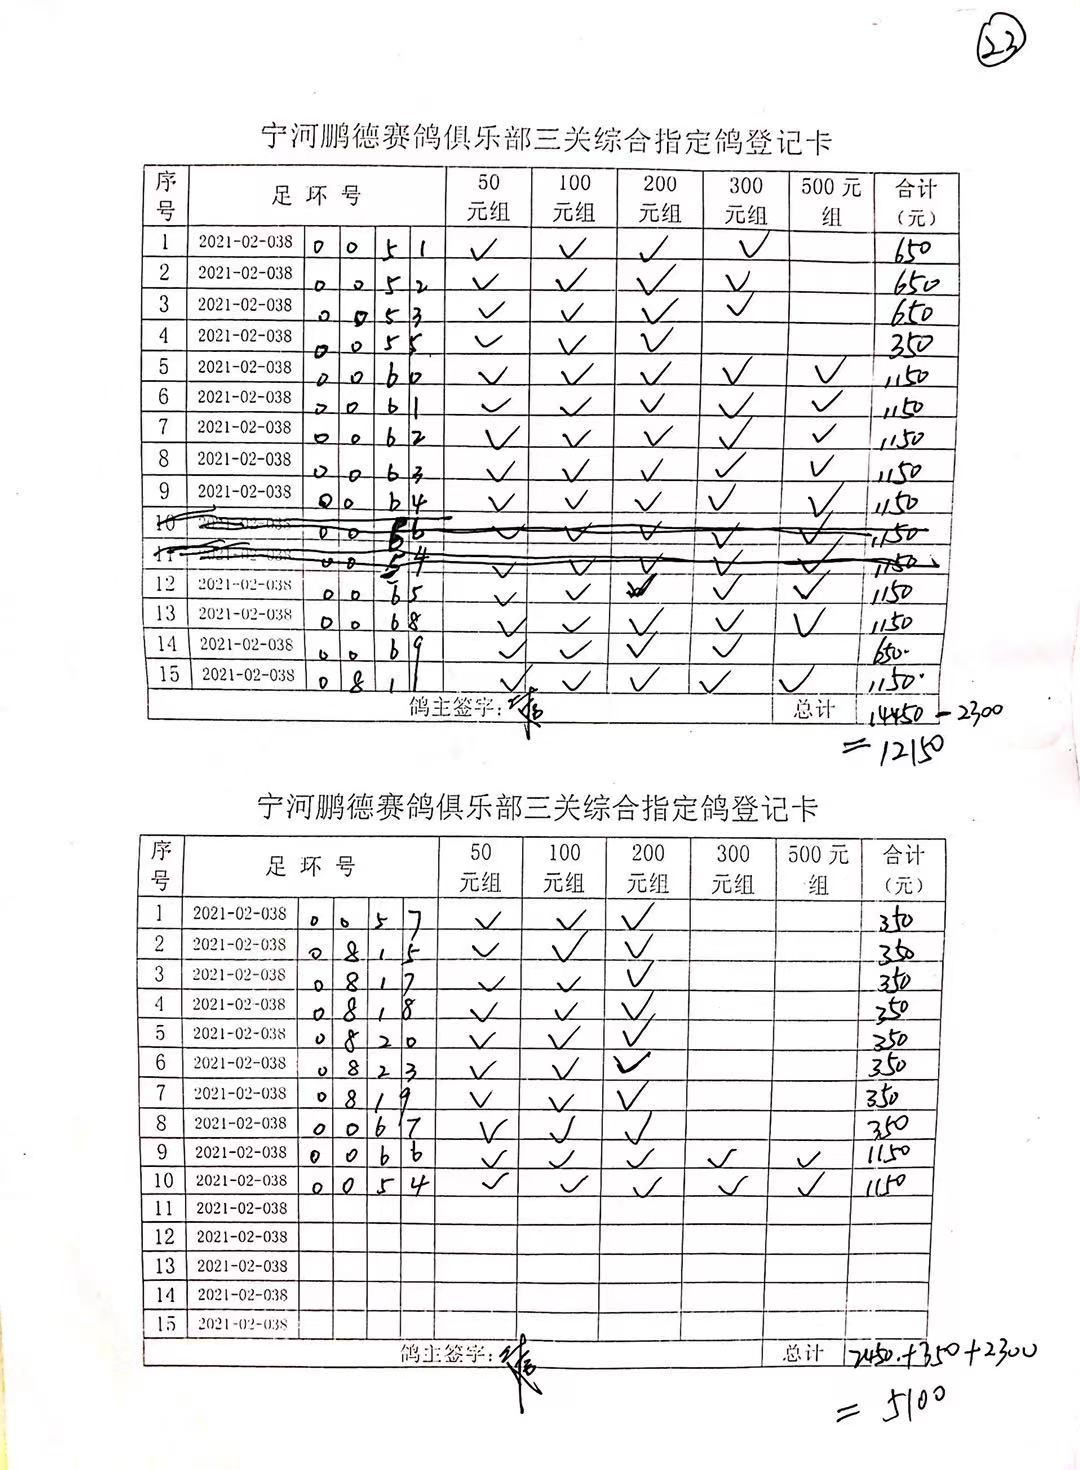 23
宁河鹏德赛鸽俱乐部三关综合指定鸽登记卡
序号 足环号 50元组 100元组 200元组 300元组 500元组 合计(元)
1 2021-02-038 0 0 5 1 ✓ ✓ ✓ ✓ 650
2 2021-02-038 0 0 5 2 ✓ ✓ ✓ ✓ 650
3 2021-02-038 0 0 5 3 ✓ ✓ ✓ ✓ 650
4 2021-02-038 0 0 5 5 ✓ ✓ ✓ 350
5 2021-02-038 0 0 6 0 ✓ ✓ ✓ ✓ ✓ 1150
6 2021-02-038 0 0 6 1 ✓ ✓ ✓ ✓ ✓ 1150
7 2021-02-038 0 0 6 2 ✓ ✓ ✓ ✓ ✓ 1150
8 2021-02-038 0 0 6 3 ✓ ✓ ✓ ✓ ✓ 1150
9 2021-02-038 0 0 6 4 ✓ ✓ ✓ ✓ ✓ 1150
10 2021-02-038 0 0 6 6 ✓ ✓ ✓ ✓ ✓ 1150
11 2021-02-038 0 0 5 4 ✓ ✓ ✓ ✓ ✓ 1150
12 2021-02-038 0 0 6 5 ✓ ✓ ✓ ✓ ✓ 1150
13 2021-02-038 0 0 6 8 ✓ ✓ ✓ ✓ ✓ 1150
14 2021-02-038 0 0 6 9 ✓ ✓ ✓ ✓ 650.
15 2021-02-038 0 8 1 1 ✓ ✓ ✓ ✓ ✓ 1150.
鸽主签字: 总计 14450-2300
=12150
宁河鹏德赛鸽俱乐部三关综合指定鸽登记卡
序号 足环号 50元组 100元组 200元组 300元组 500元组 合计(元)
1 2021-02-038 0 0 5 7 ✓ ✓ ✓ 350
2 2021-02-038 0 8 1 5 ✓ ✓ ✓ 350
3 2021-02-038 0 8 1 7 ✓ ✓ ✓ 350
4 2021-02-038 0 8 1 8 ✓ ✓ ✓ 350
5 2021-02-038 0 8 2 0 ✓ ✓ ✓ 350
6 2021-02-038 0 8 2 3 ✓ ✓ ✓ 350
7 2021-02-038 0 8 1 9 ✓ ✓ ✓ 350
8 2021-02-038 0 0 6 7 ✓ ✓ ✓ 350
9 2021-02-038 0 0 6 6 ✓ ✓ ✓ ✓ ✓ 1150
10 2021-02-038 0 0 5 4 ✓ ✓ ✓ ✓ ✓ 1150
11 2021-02-038
12 2021-02-038
13 2021-02-038
14 2021-02-038
15 2021-02-038
鸽主签字: 总计 2450.+350+2300
=5100